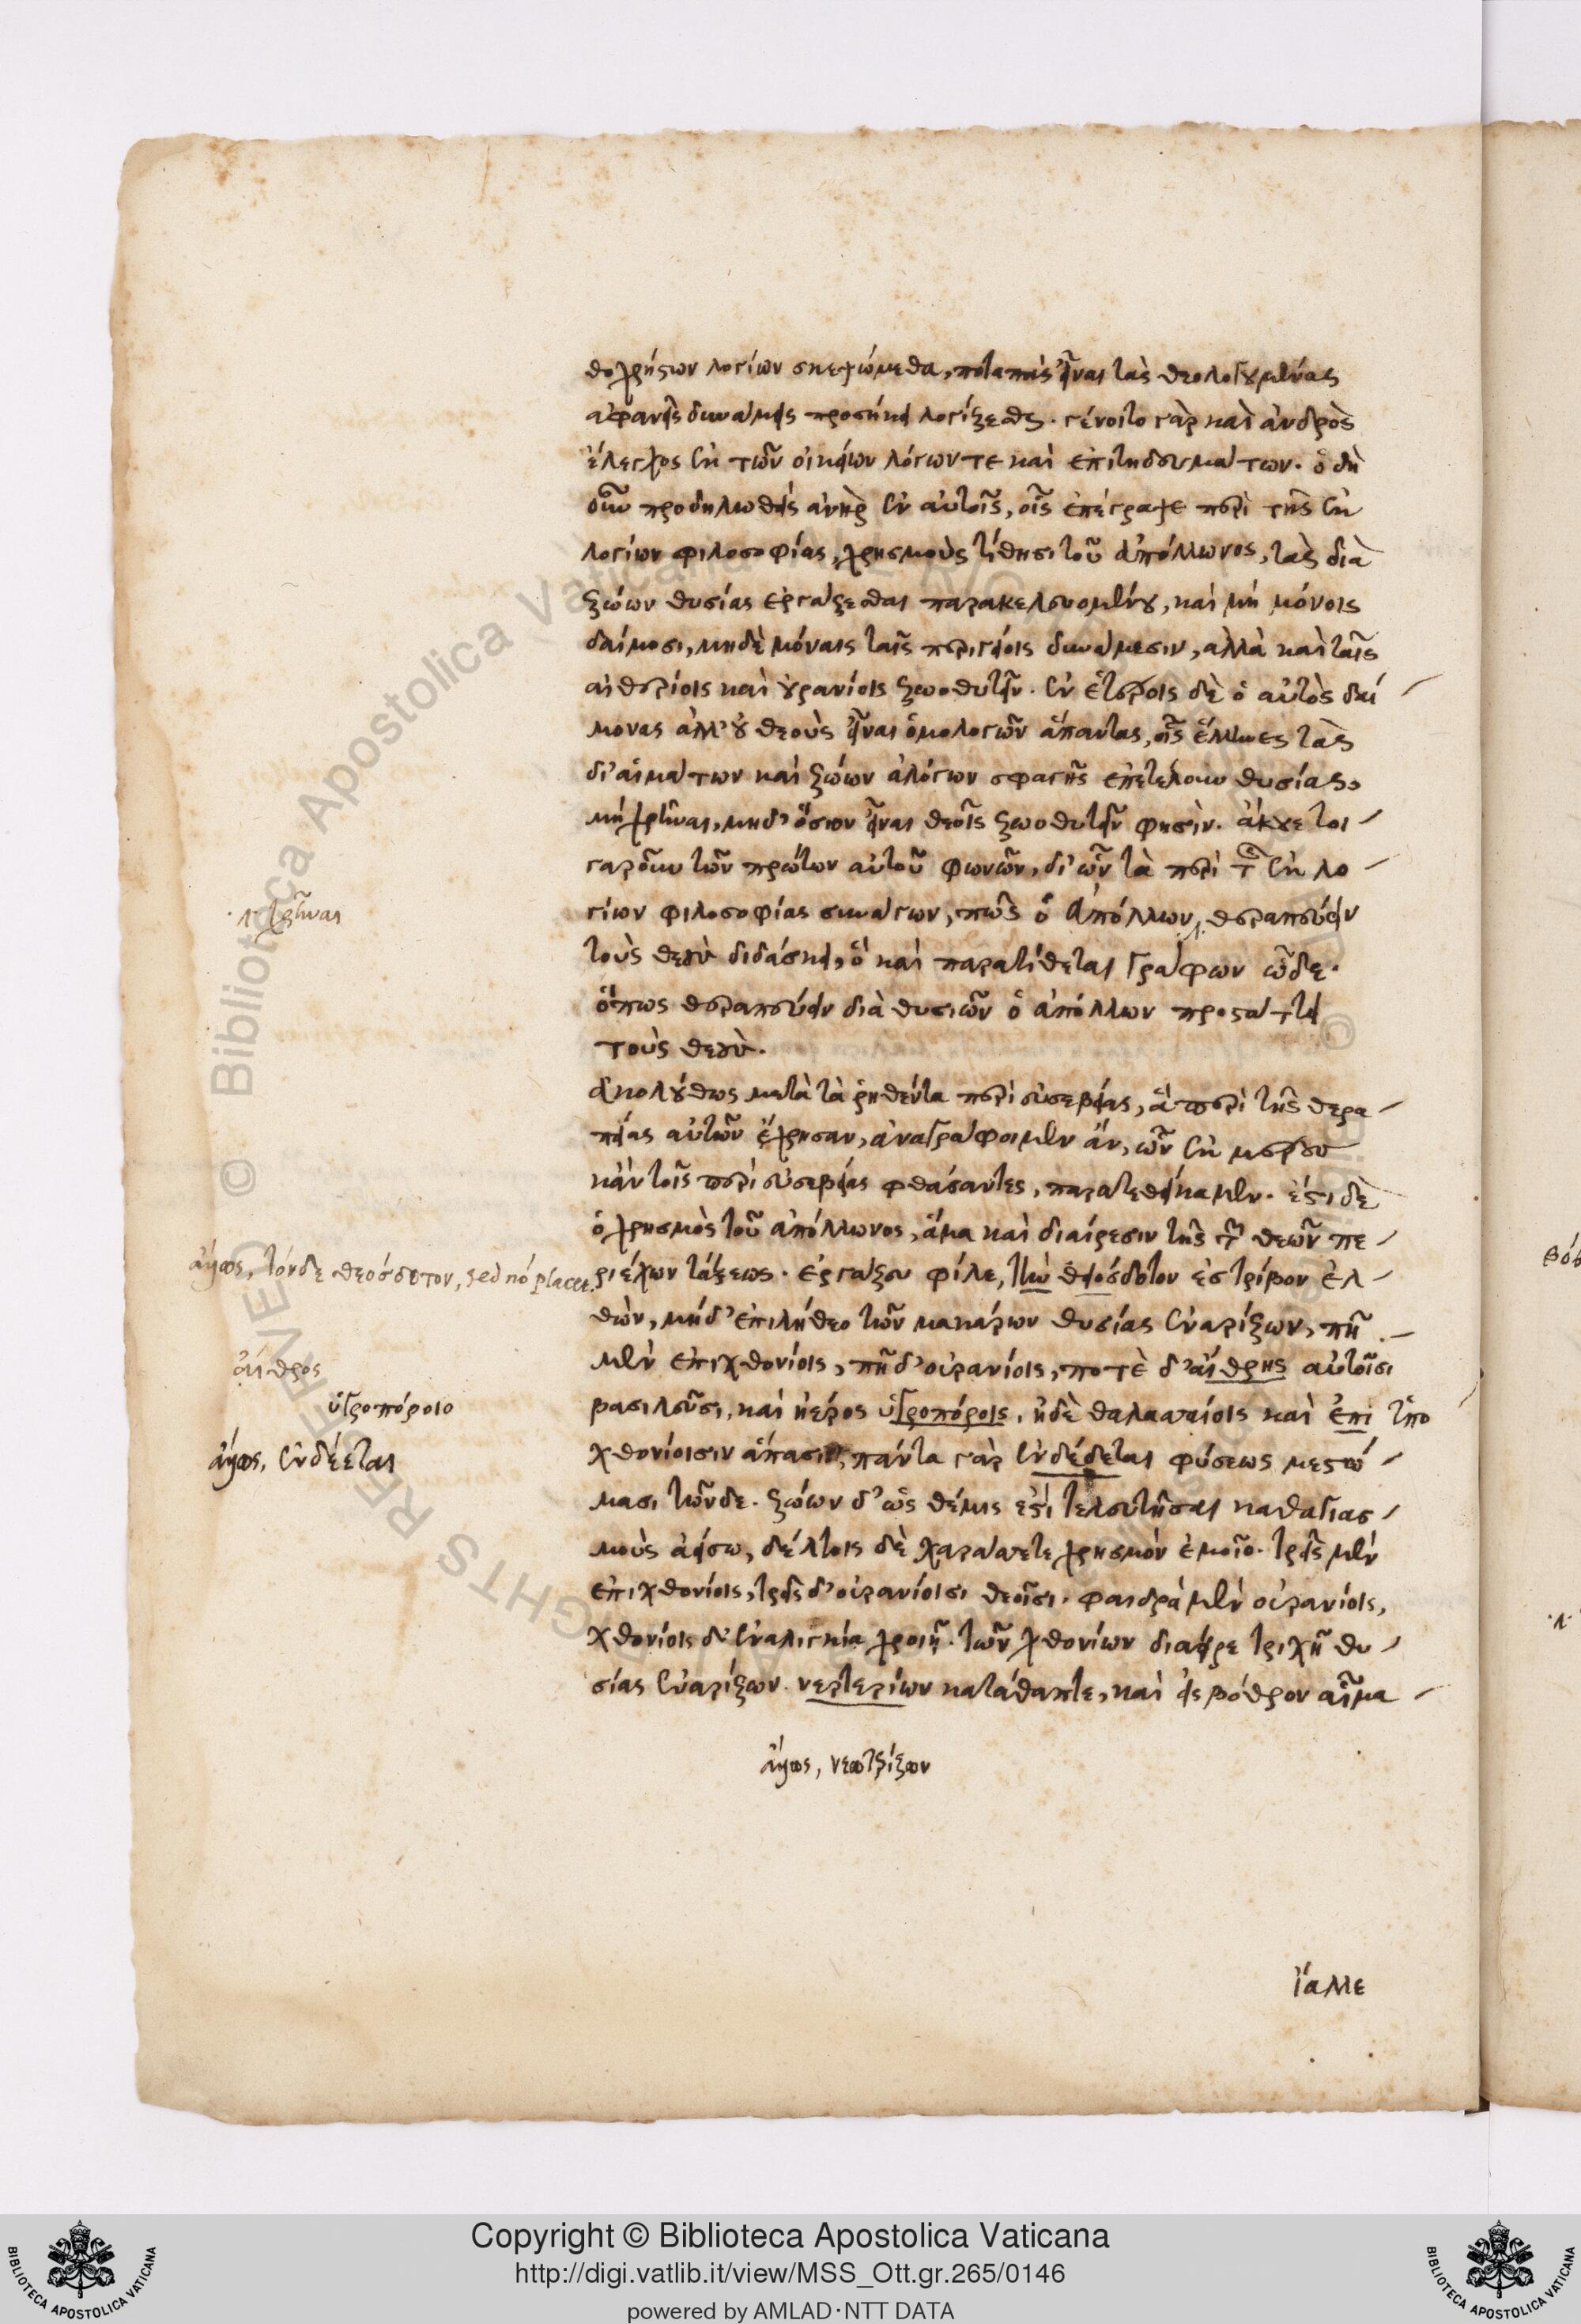 θοχρήςων λογίων σκεψώμεθα, ποταπὰς εἶναι τὰς θεολογουμένας
ἀφανεῖς δυνάμεις προσήκει λογίζεσθαι. γένοιτο γὰρ καὶ ἀνδρὸς
ἔλεγχος ἐκ τῶν οἰκείων λόγων τε καὶ ἐπιτηδευμάτων. ὁ δὴ
οὖν προδηλωθεὶς ἀνὴρ ἐν αὐτοῖς, οἷς ἐπέγραψε περὶ τῆς ἐκ
λογίων φιλοσοφίας, χρησμοὺς τίθησι τοῦ Ἀπόλλωνος, τὰς διὰ
ζώων θυσίας ἐργάζεσθαι παρακελευομένου, καὶ μὴ μόνοις
δαίμοσι, μηδὲ μόναις ταῖς περιγείοις δυνάμεσιν, ἀλλὰ καὶ ταῖς
αἰθερίοις καὶ οὐρανίοις ζωοθυτεῖν. ἐν ἑτέροις δὲ ὁ αὐτὸς δαί
μονας ἀλλ' οὐ θεοὺς εἶναι ὁμολογῶν ἅπαντας, οἷς ἕλληνες τὰς
δι' αἱμάτων καὶ ζώων ἀλόγων σφαγῆς ἐπετέλουν θυσίας,
μὴ χρῆναι, μηδ' ὅσιον εἶναι θεοῖς ζωοθυτεῖν φησίν. ἄκουε τοι
γαροῦν τῶν πρώτων αὐτοῦ φωνῶν, δι' ὧν τὰ περὶ τῆς ἐκ λο
γίων φιλοσοφίας συνάγων, πῶς ὁ Ἀπόλλων, θεραπεύειν
τοὺς θεοὺς διδάσκει, ὃ καὶ παρατίθεται γράφων ὧδε.
ὅπως θεραπεύειν διὰ θυσιῶν ὁ ἀπόλλων προσάττει
τοὺς θεούς.
Ἀκολούθως μετὰ τὰ ῥηθέντα περὶ εὐσεβείας, ἃ περὶ τῆς θερα
πείας αὐτῶν ἔχρησαν, ἀναγράφοιμεν ἄν, ὧν ἐκ μέρους
κἀν τοῖς περὶ εὐσεβείας φθάσαντες, παρατεθείκαμεν. ἔστι δὲ
ὁ χρησμὸς τοῦ ἀπόλλωνος, ἅμα καὶ διαίρεσιν τῆς τῶν θεῶν πε
ριέχων τάξεως. ἐργάζευ φίλε, τὴν θειόσδοτον ἐς τρίβον ἐλ
θὼν, μήδ' ἐπιλήθεο τῶν μακάρων θυσίας ἐναρίζων, πῆ
μὲν ἐπιχθονίοις, πῆ δ' οὐρανίοις, ποτὲ δ' αἴθρης αὐτοῖσι
βασιλεῦσι, καὶ ἠέρος ὑγροπόροις, ἠδὲ θαλασσαίοις καὶ ἐπι ὑπο
χθονίοισιν ἅπασιν, πάντα γὰρ ἐνδέδεται φύσεως μεστώ
μασι τῶνδε. ζώων δ' ὡς θέμις ἐστὶ τελευτῆσαι καθαγιασ
μοὺς ἀείσω, δέλτοις δὲ χαράσσετε χρησμὸν ἐμοῖο. τρεῖς μὲν
ἐπιχθονίοις, τρεῖς δ' οὐρανίοισι θεοῖσι. φαιδρὰ μὲν οὐρανίοις,
χθονίοις δ' ἐναλιγκία χροιῇ. τῶν χθονίων διάειρε τριχῆ θυ
σίας ἐναρίζων. νερτερίων κατάθαπτε, καὶ εἰς βόθρον αἷμα
ἴαλλε
χρῆναι
ἄλλως, τόνδε θεόσδοτον, sed nõ placet.
αἴθρος
ὑγροπόροιο
ἄλλως, ἐνδέεται
ἄλλως,
Copyright © Biblioteca Apostolica Vaticana
http://digi.vatlib.it/view/MSS_Ott.gr.265/0146
powered by AMLAD·NTT DATA